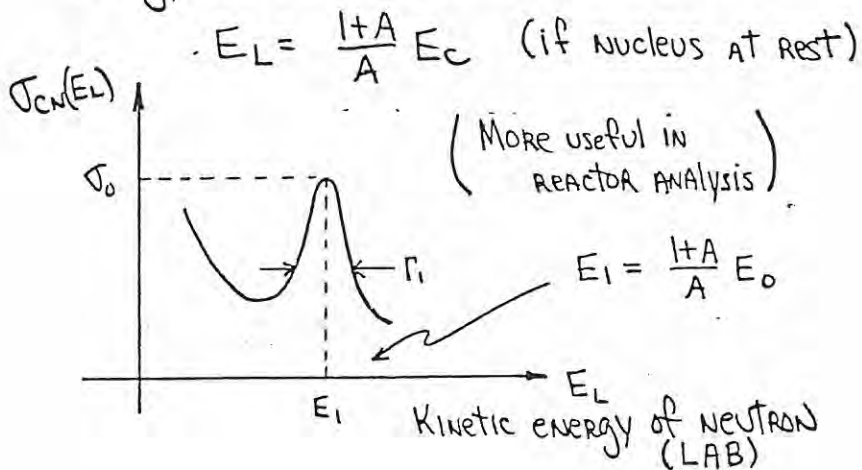 E_L = \frac{1+A}{A} E_C (if NUCLEUS AT REST)
σ_CN(E_L)
(MORE USEFUL IN
REACTOR ANALYSIS)
σ_0
Γ_1
E_1 = \frac{1+A}{A} E_0
E_L
E_1
KINETIC ENERGY OF NEUTRON
(LAB)